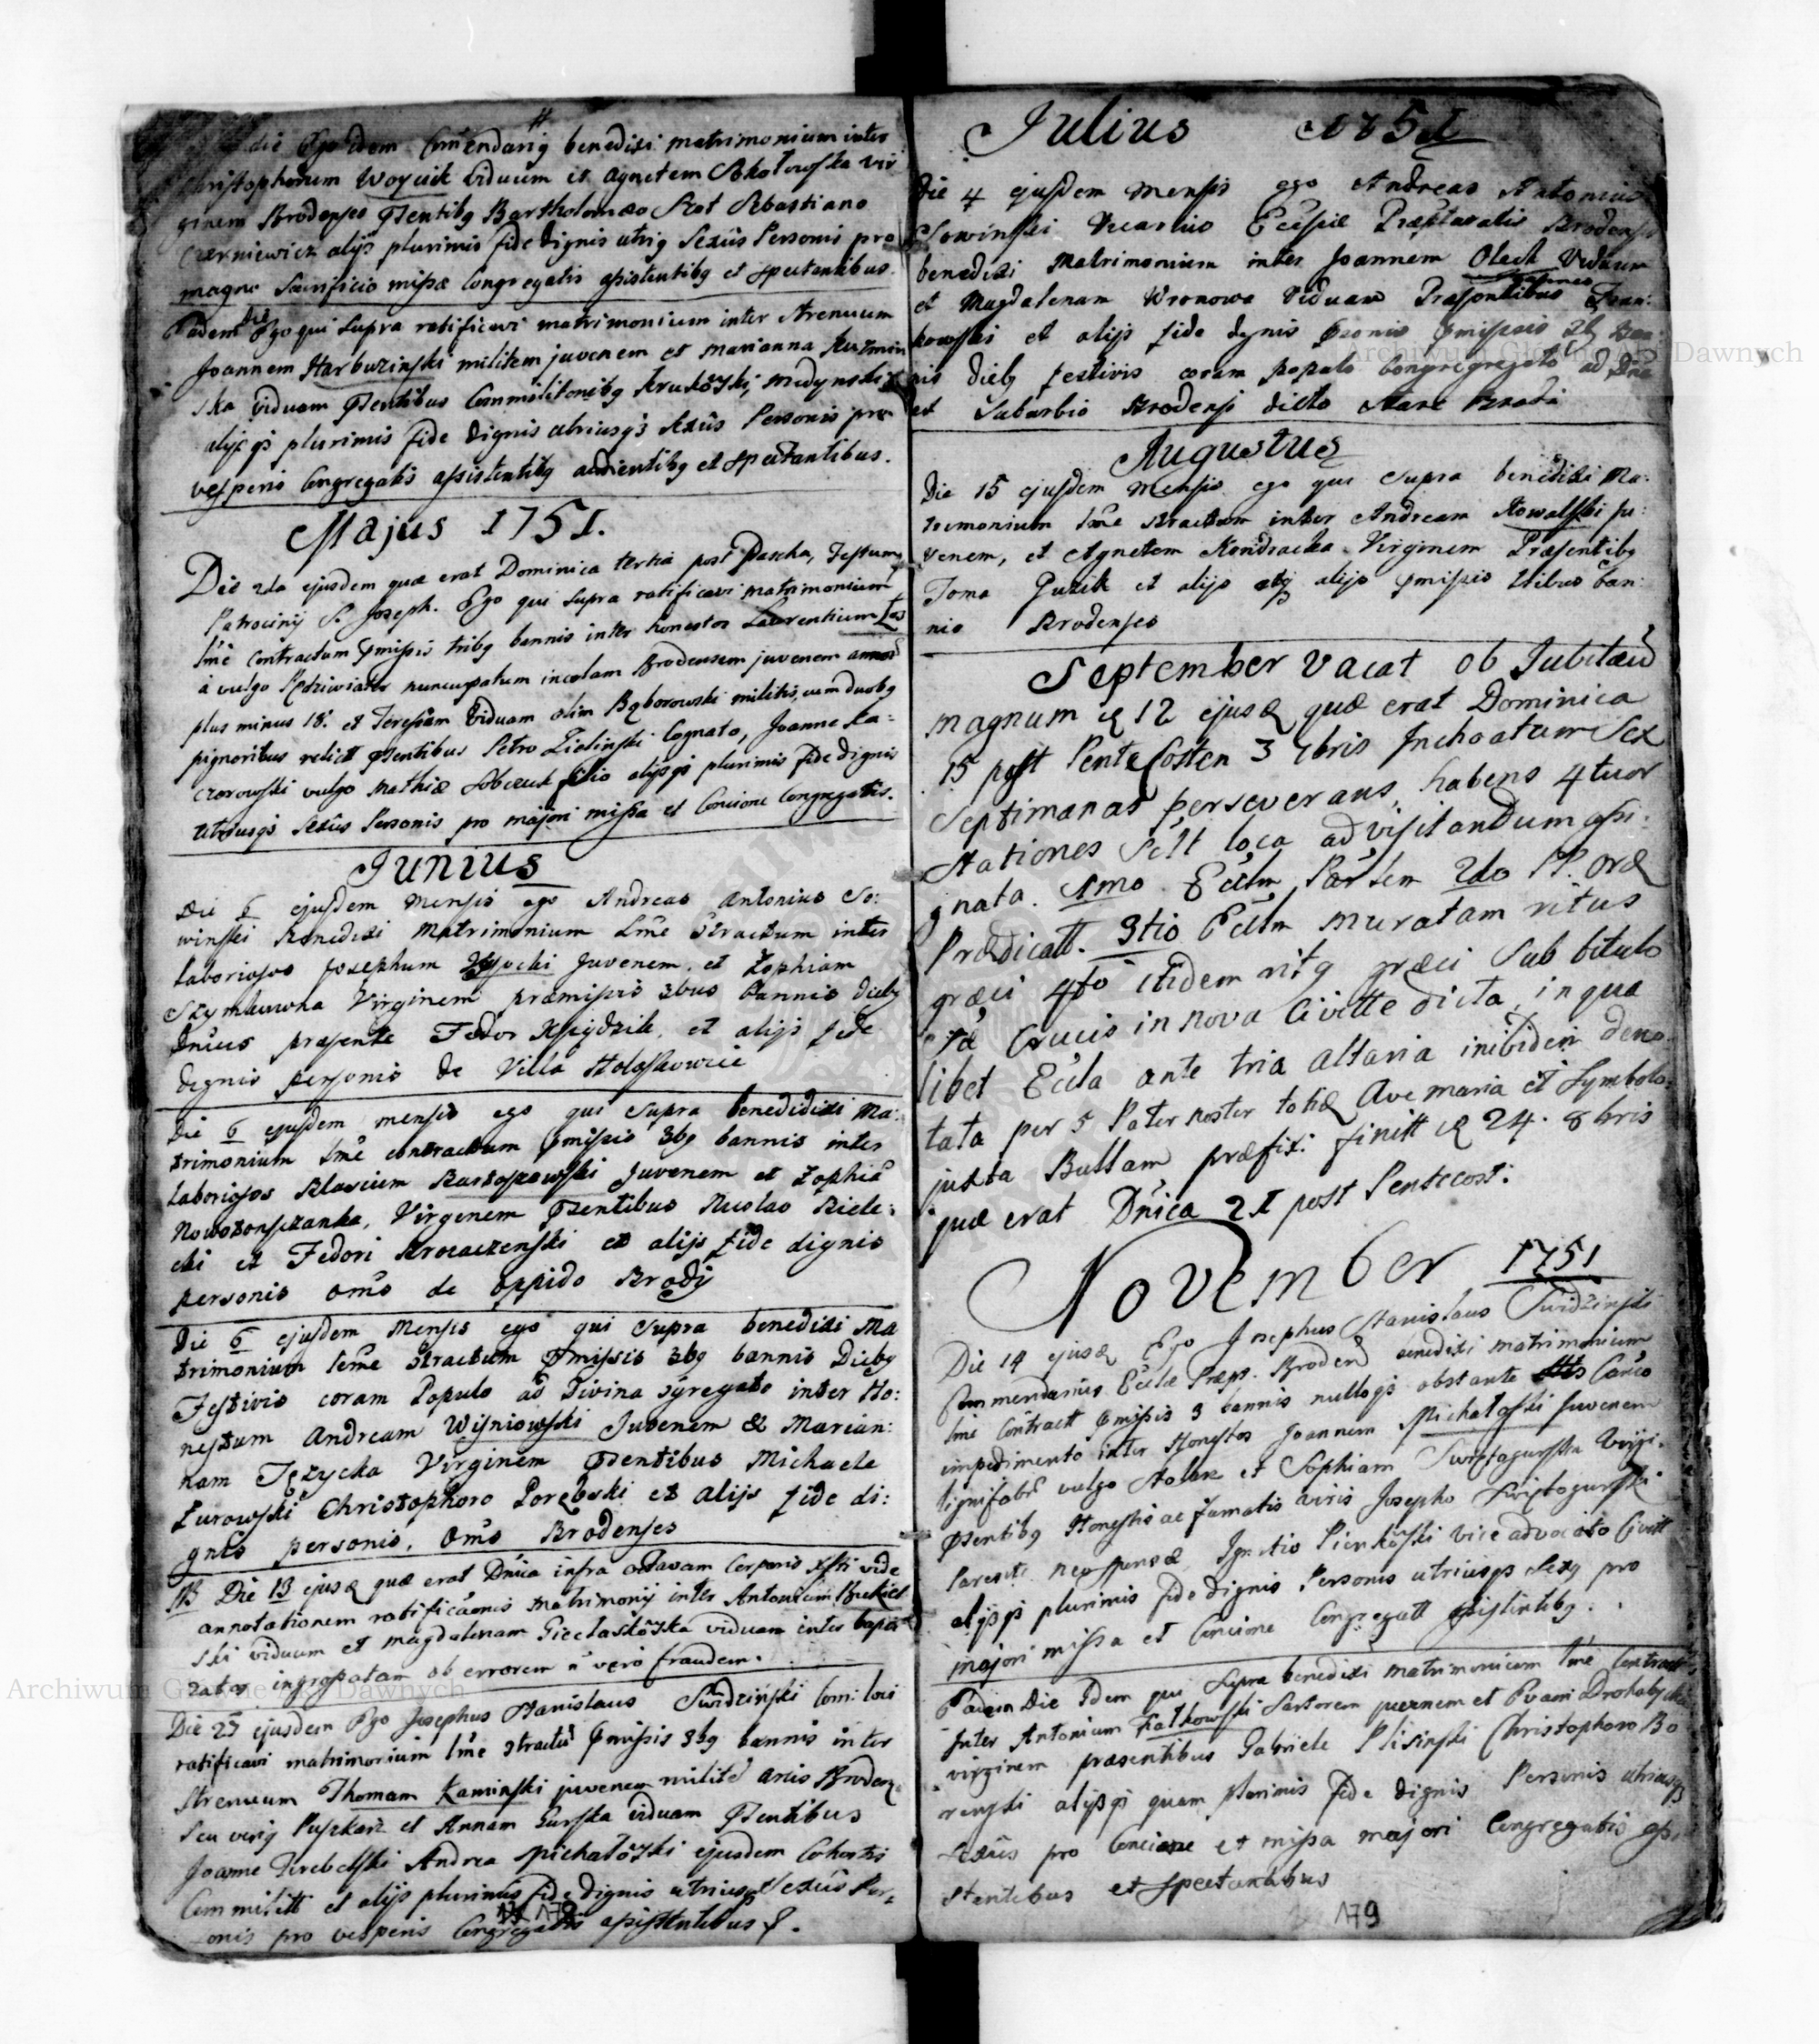 die Ego idem Comendariq benedixi matrimonium inter
Christophorum Woycik viduum et Agnetem Skotowska vir
ginem Brodenses Psentibq Bartholomæo Kot Sebastiano
Czerniewicz alijs plurimis fide dignis utriq Sexûs Personis pro
magno Sacrificio missæ Congregatis assistentibq et spectantibus.
Eadem die Ego qui supra ratificavi matrimonium inter Strenuum
Joannem Harbuzinski militem juvenem et Marianna Kuzmin
ska viduam Psentibus Commilitonibq Krukowski, Medynski
alijsqs plurimis fide dignis utriusqs Sexûs Personis pro
vesperis Congregatis assistentibq audientibq et spectantibus.
Majus 1751.
Die 2da ejusdem quæ erat Dominica tertia post Pascha, Festum
Patrocinij S. Joseph. Ego qui supra ratificavi matrimonium
lmê Contractum pmissis tribq bannis inter honestos Laurentium
à vulgo Kędziwiatr nuncupatum incolam Brodensem juvenem annor
plus minus 18. et Teressam viduam olim Bąborowski militis, cum duobq
pignoribus relict Psentibus Petro Zielinski Cognato, Joanne Ka:
czorowski vulgo Mathiæ Sobczuk filio alijsqs plurimis fide dignis
utriusqs Sexûs Personis pro majori missa et Concione Congregatis.
Junius
Die 6 ejusdem Mensis ego Andreas Antonius So:
winski Benedixi Matrimonium lmê Stractum inter
laboriosos Josephum Wysocki Juvenem et Zophiam
Szymkuwna Virginem præmissis 3bus Bannis diebq
Dnîcis præsente Fedor Xsiędzik et alijs fide
dignis personis de Villa Holoskowice
Die 6 ejusdem mensis ego qui supra benedidixi Ma:
trimonium lmê contractum pmissis 3bq bannis inter
laboriosos Blasium Bartoszewski Juvenem et Zophiã
Nowosonszanka, Virginem Psentibus Nicolao Biele:
cki et Fedori Krocaczenski et alijs fide dignis
personis omês de oppido Brody
Die 6 ejusdem Mensis ego qui supra benedixi Ma
trimonium leme Stractum Pmissis 3bq bannis Diebq
Festivis coram Populo ad Divina sgregato inter Ho:
nestum Andream Wisniowski Juvenem & Marian:
nam Tęzycka Virginem Psentibus Michaele
Zurowski Christophoro Porębski et alijs fide di:
gnis personis, omês Brodenses
NB Die 13 ejusq quæ erat Dnîca infra octavam Corporis Xsti vide
annotationem ratificãonis matrimonij inter Antonium Buckiel
ski viduum et Magdalenam Cieclaskowska viduam inter bapti
zatos ingrossatam ob errorem n vero fraudem.
Die 25 ejusdem Ego Josephus Stanislaus Swidzinski Com: loci
ratificavi matrimonium lmê Stractũ Pmissis 3bq bannis inter
Strenuum Thomam Kaminski juvenem militẽ arcis Brodens
seu veriq Puszkarz et Annam Gurska viduam Psentibus
Joanne Terebelski Andrea Michałowski ejusdem Cohortis
Commilitt et alijs plurimis fide dignis utriusqs Sexûs Per:
sonis pro vesperis Congregatis assistentibus &.
178
Julius 1751
Die 4 ejusdem Mensis ego Andreas Antonius
Sowinski Vicarius Ecclsiæ Præpturalis Brodensis
benedixi Matrimonium inter Joannem Olech Viduum
et Magdalenam Wronowa Viduam Præsentibus
kowski et alijs fide dignis psonis pmissis 3bq Ban:
nis diebq festivis coram populo congregregato ad Dna
ex Suburbio Brodensi dicto Stare Brodi
Augustus
Die 15 ejusdem Mensis ego qui supra benedixi Ma:
trimonium lme Stractum inter Andream Kowalski Ju:
venem, et Agnetem Kondracka Virginem Præsentibq
Toma Guzik et alijs atq alijs pmissis tribus ban:
nis Brodenses
September vacat ob Jubilæũ
magnum q 12 ejusq quæ erat Dominica
15 post Pentecosten 3 7bris Inchoatum Sex
Septimanas perseverans, habens 4tuor
Stationes Scilt loca ad visitandum assi:
gnata. 1mo Ecclm Parlem 2do PP. Ord
Prædicatt. 3tio Ecclm muratam ritus
græci 4to itidem ritq græci sub titulo
S̃tæ Crucis in nova Civitte dicta, in qua
libet Eccla ante tria altaria inibidem deno
tata per 5 Pater noster totiq Ave Maria et Symbolo
juxta Bullam præfixi: finitt q 24. 8bris
quæ erat Dnîca 21 post Pentecost:
November 1751
Die 14 ejusq Ego Josephus Stanislaus Swidzinski
Commendarius Ecclæ Præp. Broden benedixi matrimonium
lmê Contractt pmissis 3 bannis nulloqs obstante Canco
impedimento inter Honestos Joannem Michałoski Juvenem
lignifabr vulgo Stolarz et Sophiam Swiętogurska Virgi:
Psentibq Honestis ac famatis viris Josepho Swiętogurski
Parente neosponsæ, Ignatio Pienkowski viceadvocato Civitt
alijsqs plurimis fide dignis Personis utriusqs Sexq pro
majori missa et Concione Congregatt assistentibq.
Eadem Die Idem qui supra benedixi matrimonium lmê Contractt
Inter Antonium Kalkowski Sartorem juvenem et Evam Drohobycka
virginem præsentibus Gabriele Plisinski Christophoro Bo
renski alijsqs quam plurimis fide dignis Personis utriusqs
Sexûs pro Concione et missa majori Congregatis assi
stentibus et spectantibus
179
Archiwum Główne Akt Dawnych
Archiwum Główne Akt Dawnych